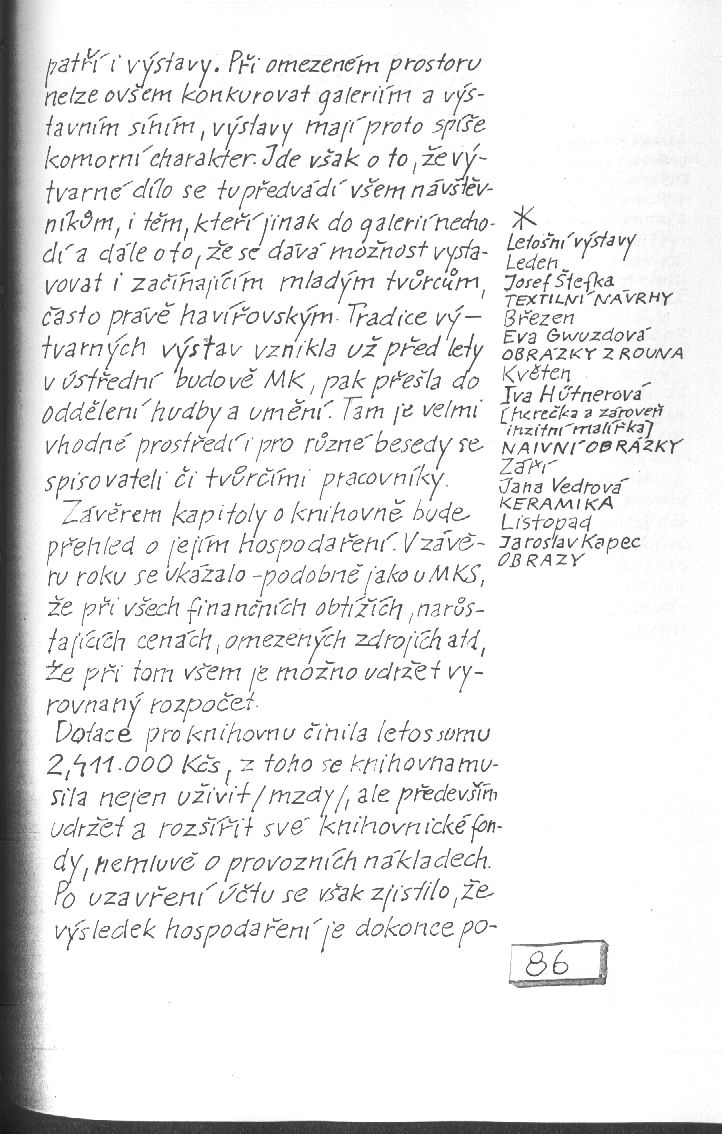 patří i výstavy. Při omezeném prostoru
nelze ovšem konkurovat galeriím a výs-
tavním síním, výstavy mají proto spíše
komorní charakter. Jde však o to, že vý-
tvarné dílo se tu předvádí všem návštěv-
níkům, i těm, kteří jinak do galerií necho-
dí a dále o to, že se dává možnost vysta-
vovat i začínajícím mladým tvůrcům,
často právě havířovským. Tradice vý-
tvarných výstav vznikla už před lety
v ústřední budově MK, pak přešla do
oddělení hudby a umění. Tam je velmi
vhodné prostředí i pro různé besedy se
spisovateli či tvůrčími pracovníky.
Závěrem kapitoly o knihovně bude
přehled o jejím hospodaření. V závě-
ru roku se ukázalo - podobně jako u MKS,
že při všech finančních obtížích, narůs-
tajících cenách, omezených zdrojích atd,
že při tom všem je možno udržet vy-
rovnaný rozpočet.
Dotace pro knihovnu činila letos sumu
2,411.000 Kčs, z toho se knihovna mu-
sila nejen uživit /mzdy/, ale především
udržet a rozšířit své knihovnické fon-
dy, nemluvě o provozních nákladech.
Po uzavření účtu se však zjistilo, že
výsledek hospodaření je dokonce po-
*
Letošní výstavy
Leden
Josef Štefka
TEXTILNÍ NÁVRHY
Březen
Eva Gwuzdová
OBRÁZKY Z ROUNA
Květen
Iva Hűtnerová
[herečka a zároveň
inzitní malířka]
NAIVNÍ OBRÁZKY
Září
Jana Vedrová
KERAMIKA
Listopad
Jaroslav Kapec
OBRAZY
86